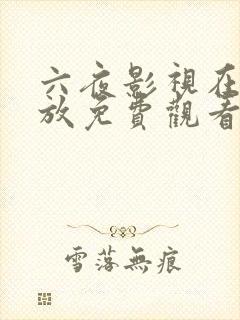 六夜影視在
放免費觀看
雪落無痕